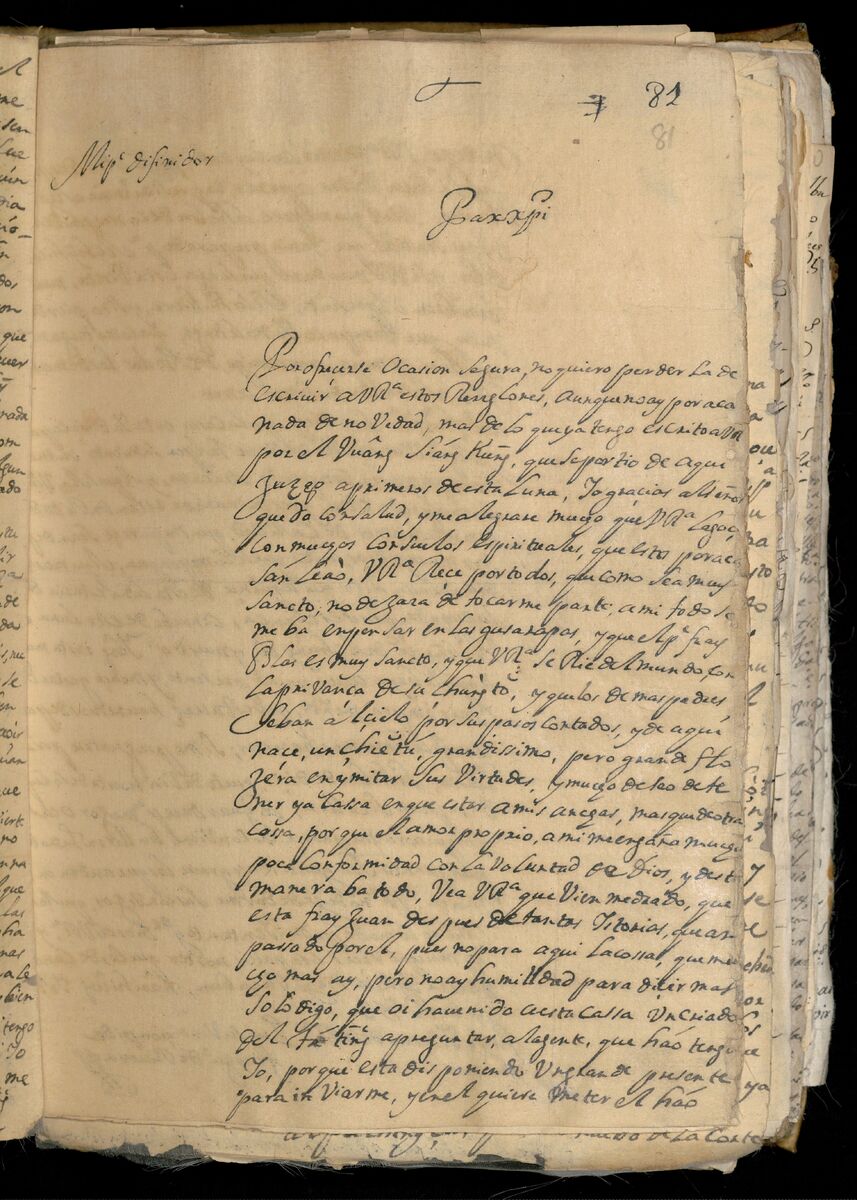 82
81
Mi pᵉ difinidor
Pax xpi
Por ofrecerse ocasion segura, no quiero perder la de
escriuir a VRᵃ estos Renglones, aunque no ay por aca
nada de novedad, mas de lo que ya tengo escrito a VR
por el Vuâng Siáng Kung, que se partio de aqui
juzgo a primeros de esta Luna, Io gracias al señor
quedo con salud, y me alegrare mucho que VRᵃ
con muchos consuelos espirituales, que estos por aca
san leaò, VRᵃ Rece por todos, que como sea muy
sancto, no dexara de tocarme parte, a mi todo se
me ba en pensar en las gusarapas, y que el pᵉ fray
Blas es muy sancto, y que VRᵃ se Rie del mundo con
la privanca de su chùngtò, y que los demas padres
se ban ál cielo por sus pasos contados, y de aqui
nace, un chietú, grandissimo, pero grande flo
xera en ymitar sus Virtudes, y mucho deseo de te
ner ya cassa en que estar a mis anchas, mas que de otra
cossa, por que el amor proprio, a mi me engaña mucho
poca conformidad con la voluntad de Dios, y desta
manera ba todo, Vea VRᵃ que Vien medrado, que
esta fray Juan despues de tantas Istorias, que an
passado por el, pues no para aqui la cossa, que mu
cho mas ay, pero no ay humildad para decir mas
solo digo, que oi ha venido a esta cassa Un criado
del tíng a preguntar, a la gente, que haó tengo
Io, porque esta disponiendo Un grande presente
para inViarme, y en el quiere meter el haó